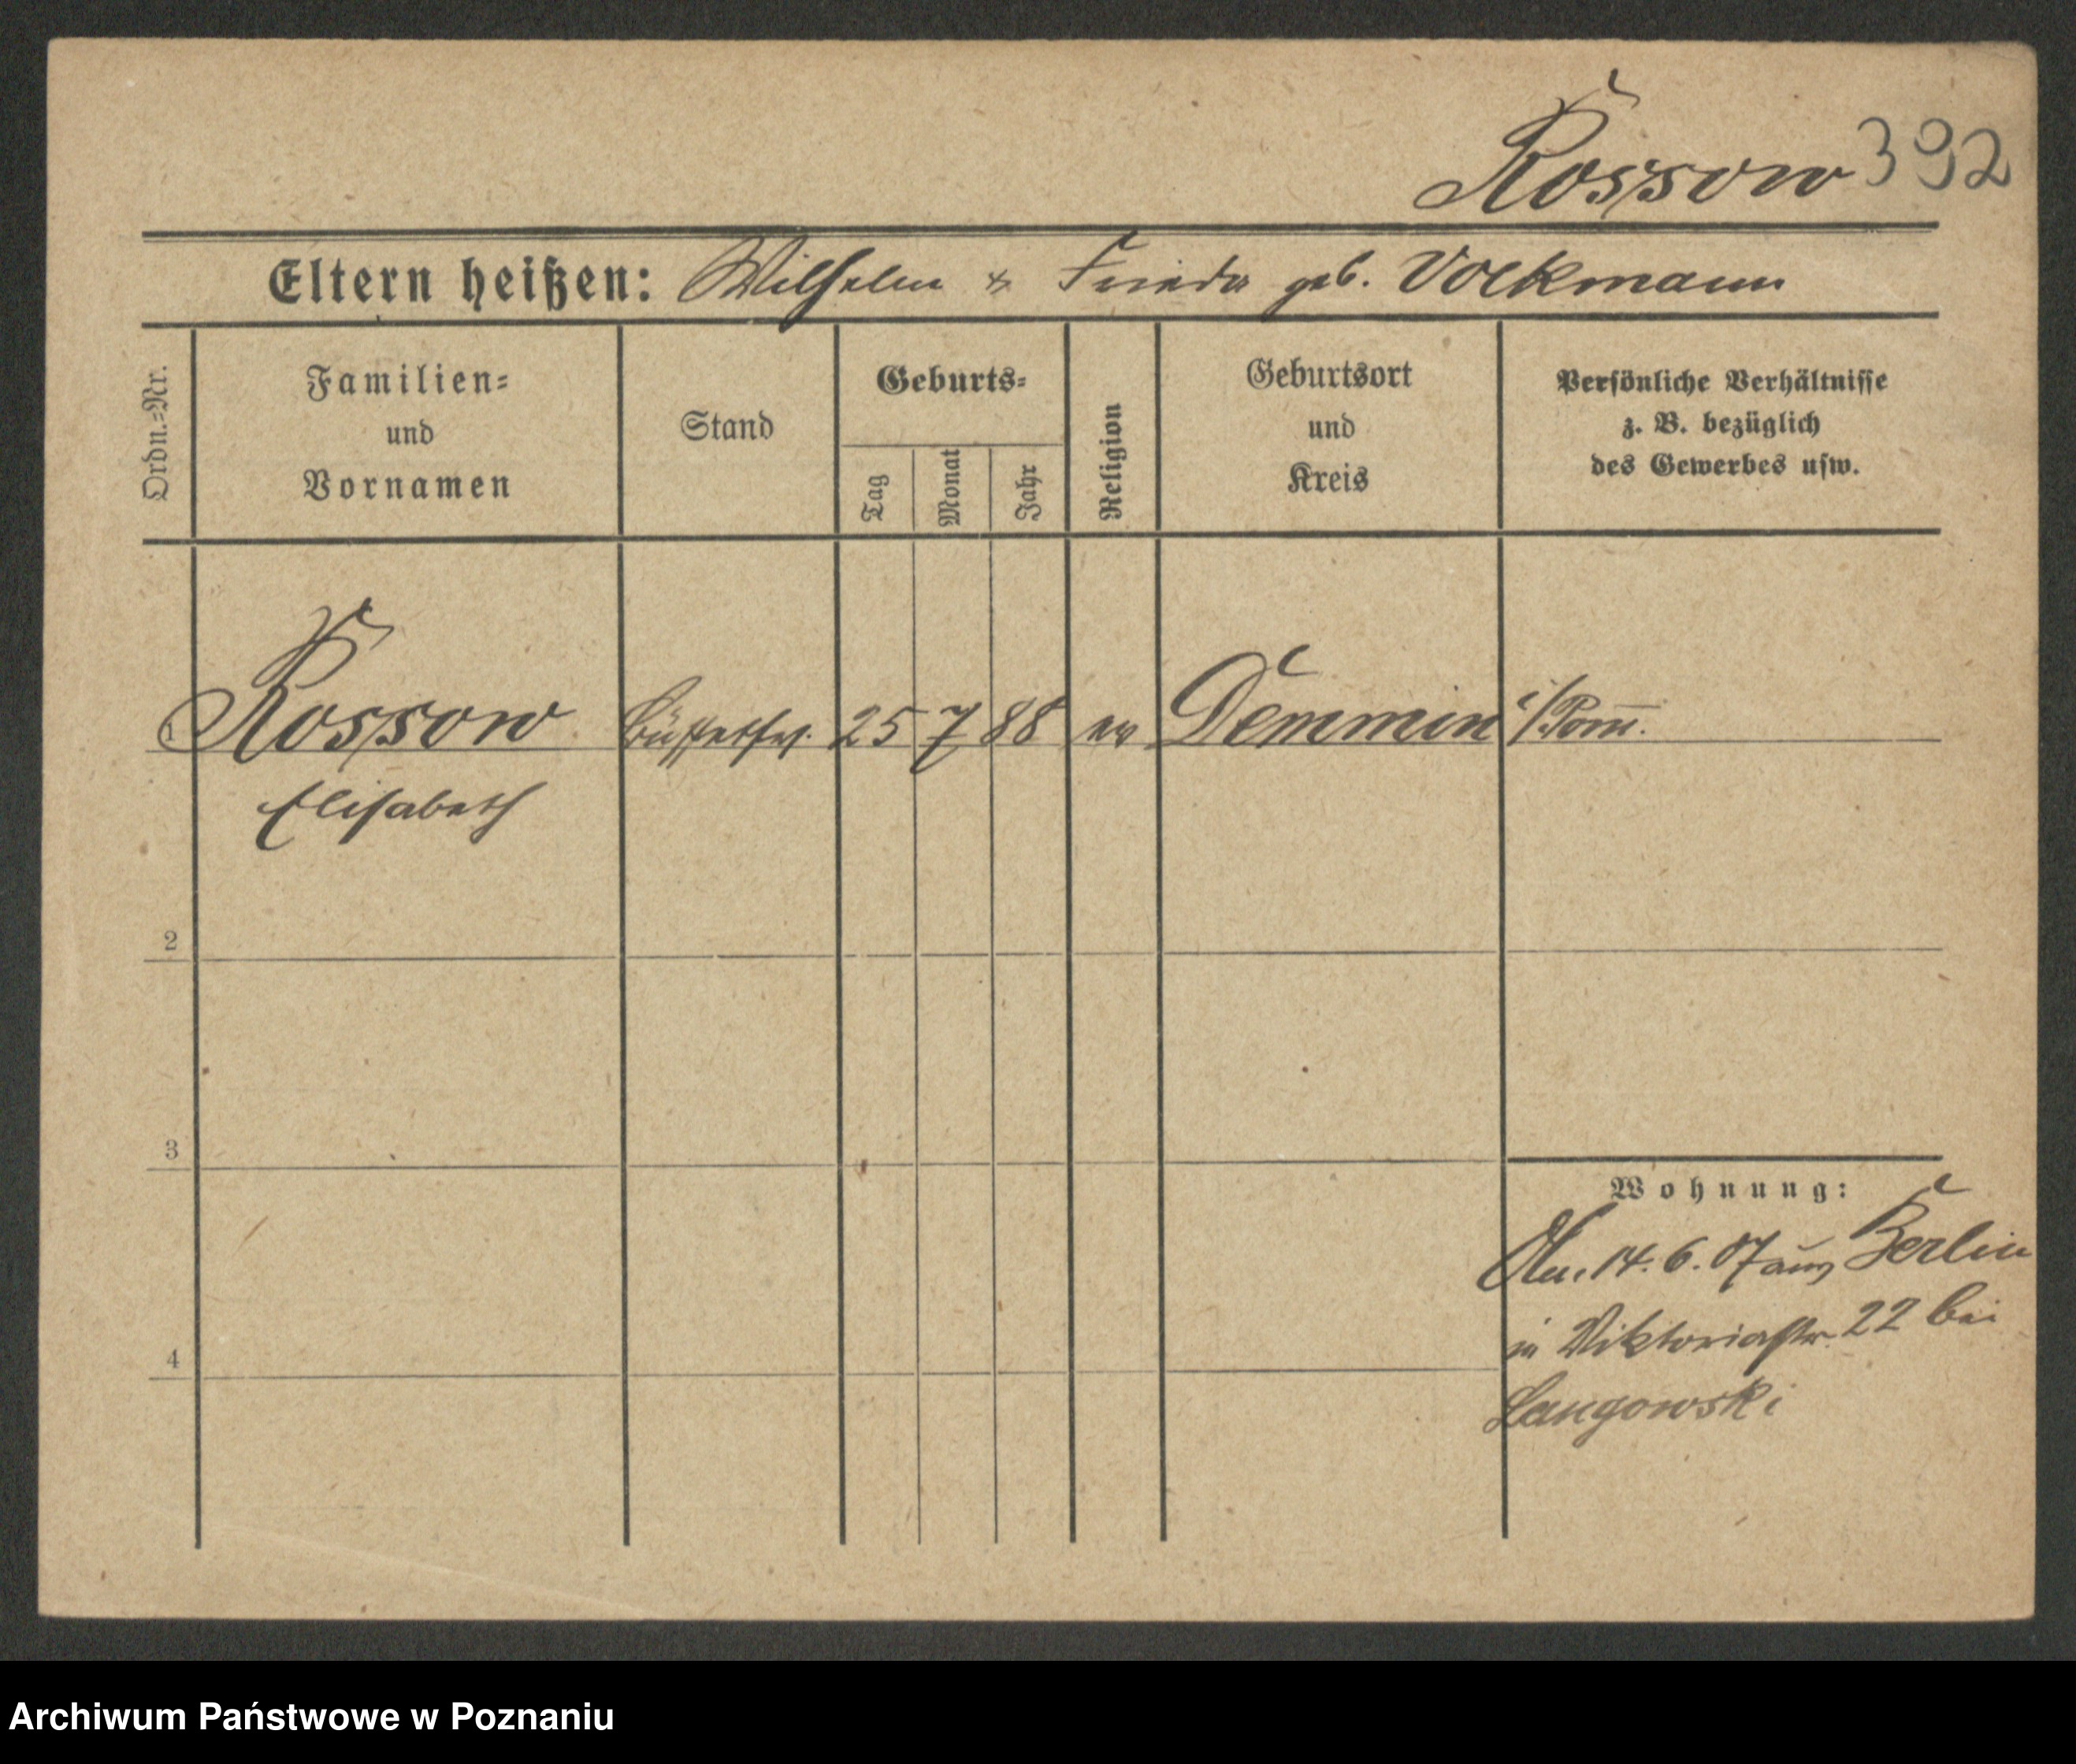 Rossow 392
Eltern heißen: Wilhelm & Frieda geb. Volkmann
Ordn.-Nr.
Familien-
und
Vornamen
Stand
Geburts-
Tag
Monat
Jahr
Religion
Geburtsort
und
Kreis
Persönliche Verhältnisse
z. B. bezüglich
des Gewerbes usw.
1 Rossow 25 7 88 ev Demmin i/Pom.
Elisabeth
2
3
4
Wohnung:
14. 6. 07 aus Berlin
in Viktoriastr. 22 bei
Langowski
Archiwum Państwowe w Poznaniu